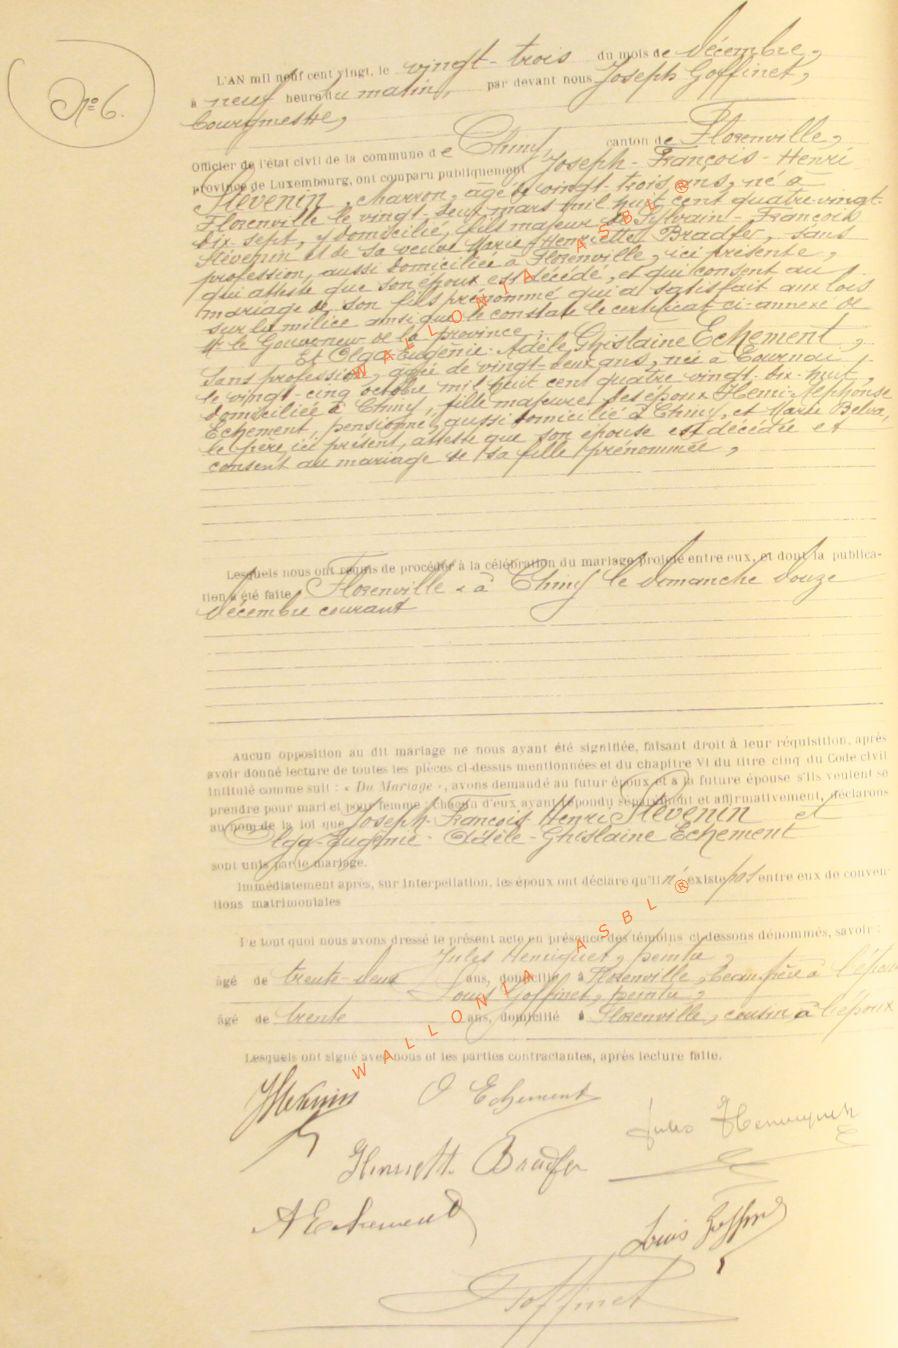 N° 6.
L'AN mil neuf cent vingt, le vingt-trois du mois de Décembre,
à neuf heures du matin, par devant nous Joseph Goffinet,
bourgmestre,
Officier de l'état civil de la commune de Chiny, canton de Florenville,
province de Luxembourg, ont comparu publiquement Joseph-François-Henri
Stévenin, charron, âgé de vingt-trois ans, né à
Florenville le vingt-deux mars mil huit cent quatre-vingt-
dix sept, y domicilié, fils majeur de Sylvain-François
Stévenin et de sa veuve Marie Henriette Bradfer, sans
profession, aussi domiciliée à Florenville, ici présente,
qui atteste que son époux est décédé, et qui consent au
mariage de son fils prénommé qui a satisfait aux lois
sur la milice ainsi que le constate le certificat ci-annexé de
Mr le Gouverneur de la province;
Et Olga-Eugénie-Adèle Ghislaine Echement,
sans profession, âgée de vingt-deux ans, née à Tournai
le vingt-cinq octobre mil huit cent quatre vingt-dix-huit,
domiciliée à Chiny, fille majeure des époux Henri-Alphonse
Echement, pensionné, aussi domicilié à Chiny, et Marie Belva,
le père, ici présent, atteste que son épouse est décédée et
consent au mariage de sa fille prénommée,
Lesquels nous ont requis de procéder à la célébration du mariage projeté entre eux, et dont la publica-
tion a été faite Florenville & à Chiny le dimanche douze
décembre courant
Aucun opposition au dit mariage ne nous ayant été signifiée, faisant droit à leur réquisition, après
avoir donné lecture de toutes les pièces ci-dessus mentionnées et du chapitre VI du titre cinq du Code civil
intitulé comme suit : « Du Mariage », avons demandé au futur époux et à la future épouse s'ils veulent se
prendre pour mari et pour femme ; chacun d'eux ayant répondu séparément et affirmativement, déclarons
au nom de la loi que Joseph-François-Henri Stévenin et
Olga-Eugénie-Adèle-Ghislaine Echement
sont unis par le mariage.
Immédiatement après, sur interpellation, les époux ont déclaré qu'il n'existe pas entre eux de conven-
tions matrimoniales
De tout quoi nous avons dressé le présent acte en présence des témoins ci-dessons dénommés, savoir :
Jules Henriquet, peintre,
âgé de trente-deux ans, domicilié à Florenville, beau frère à l'époux
Louis Goffinet, peintre,
âgé de trente ans, domicilié à Florenville, cousin à l'époux
Lesquels ont signé avec nous et les parties contractantes, après lecture faite.
JStévenin O Echement
Jules Henriquet
Henriette Bradfer
A Echement
Louis Goffinet
Goffinet
WALLONIA ASBL ®
WALLONIA ASBL ®